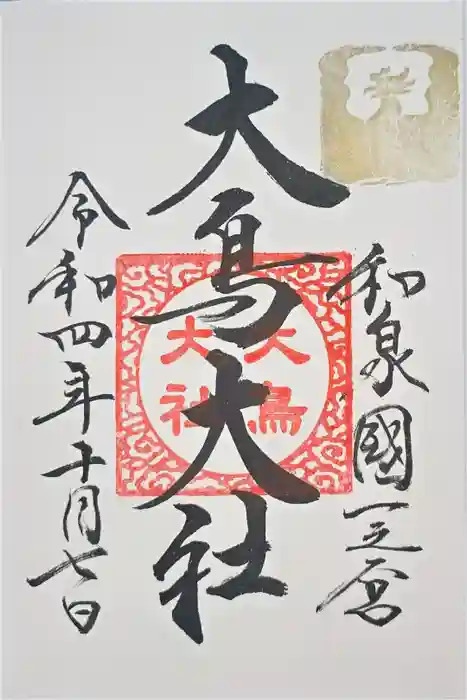 和泉國一之宮
大鳥大社
大鳥大社
令和四年十月七日